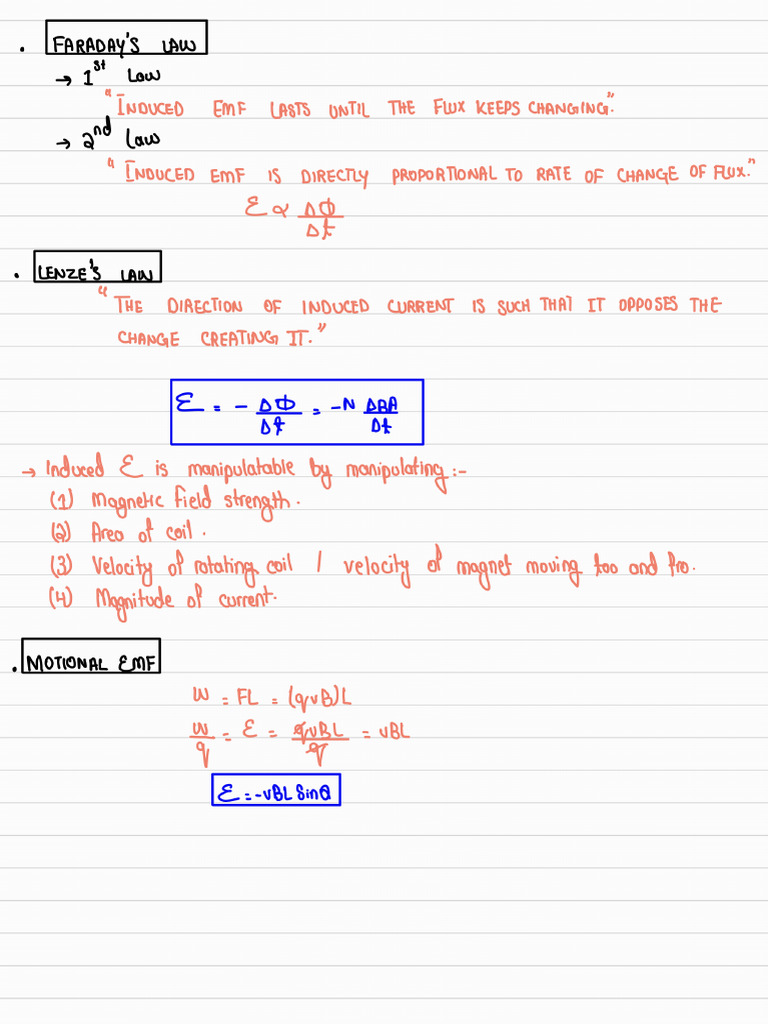 • FARADAY'S LAW
→ 1st Law
"INDUCED EMF LASTS UNTIL THE FLUX KEEPS CHANGING."
→ 2nd Law
"INDUCED EMF IS DIRECTLY PROPORTIONAL TO RATE OF CHANGE OF FLUX."
ℰ ∝ ΔΦ/Δt
• LENZE'S LAW
"THE DIRECTION OF INDUCED CURRENT IS SUCH THAT IT OPPOSES THE
CHANGE CREATING IT."
ℰ = - ΔΦ/Δt = -N ΔBA/Δt
→ Induced ℰ is manipulatable by manipulating :-
(1) Magnetic field strength.
(2) Area of coil.
(3) Velocity of rotating coil / velocity of magnet moving too and fro.
(4) Magnitude of current.
• MOTIONAL EMF
W = FL = (qvB)L
W/q = ℰ = qvBL/q = vBL
ℰ = -vBL Sinθ